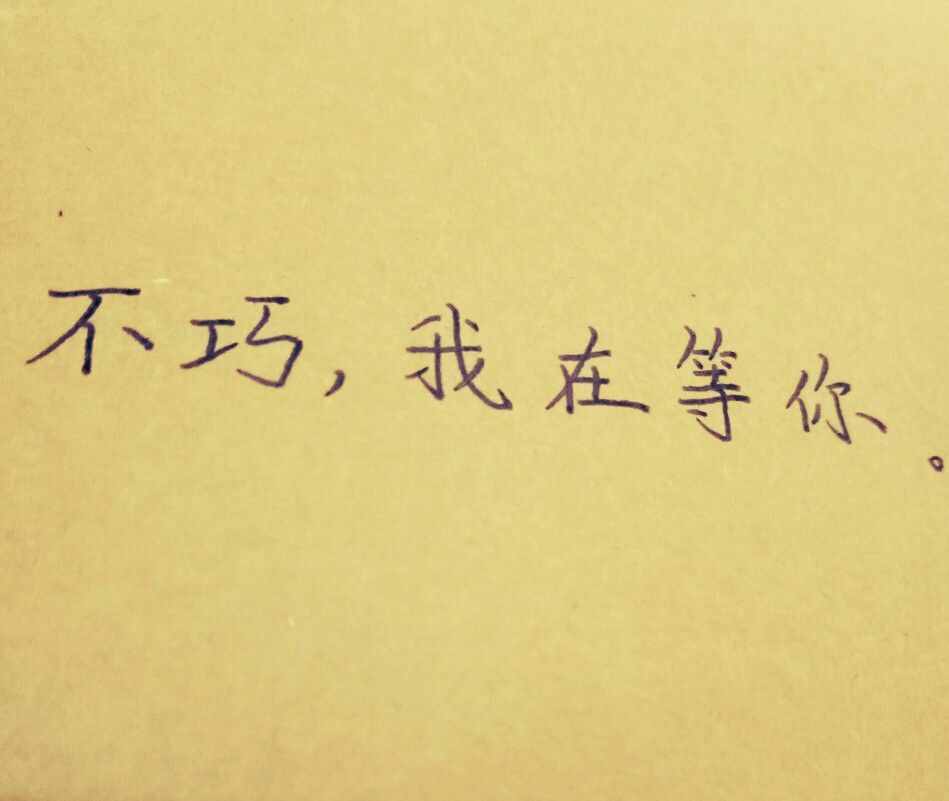 不巧,我在等你。